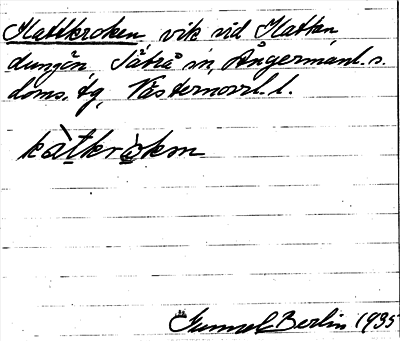 Kattkroken vik vid Katten,
dungön Säbrå sn, Ångermanl. s.
doms. tg, Västernorrl. l.
kàtkròkm
Gunnel Berlin 1935